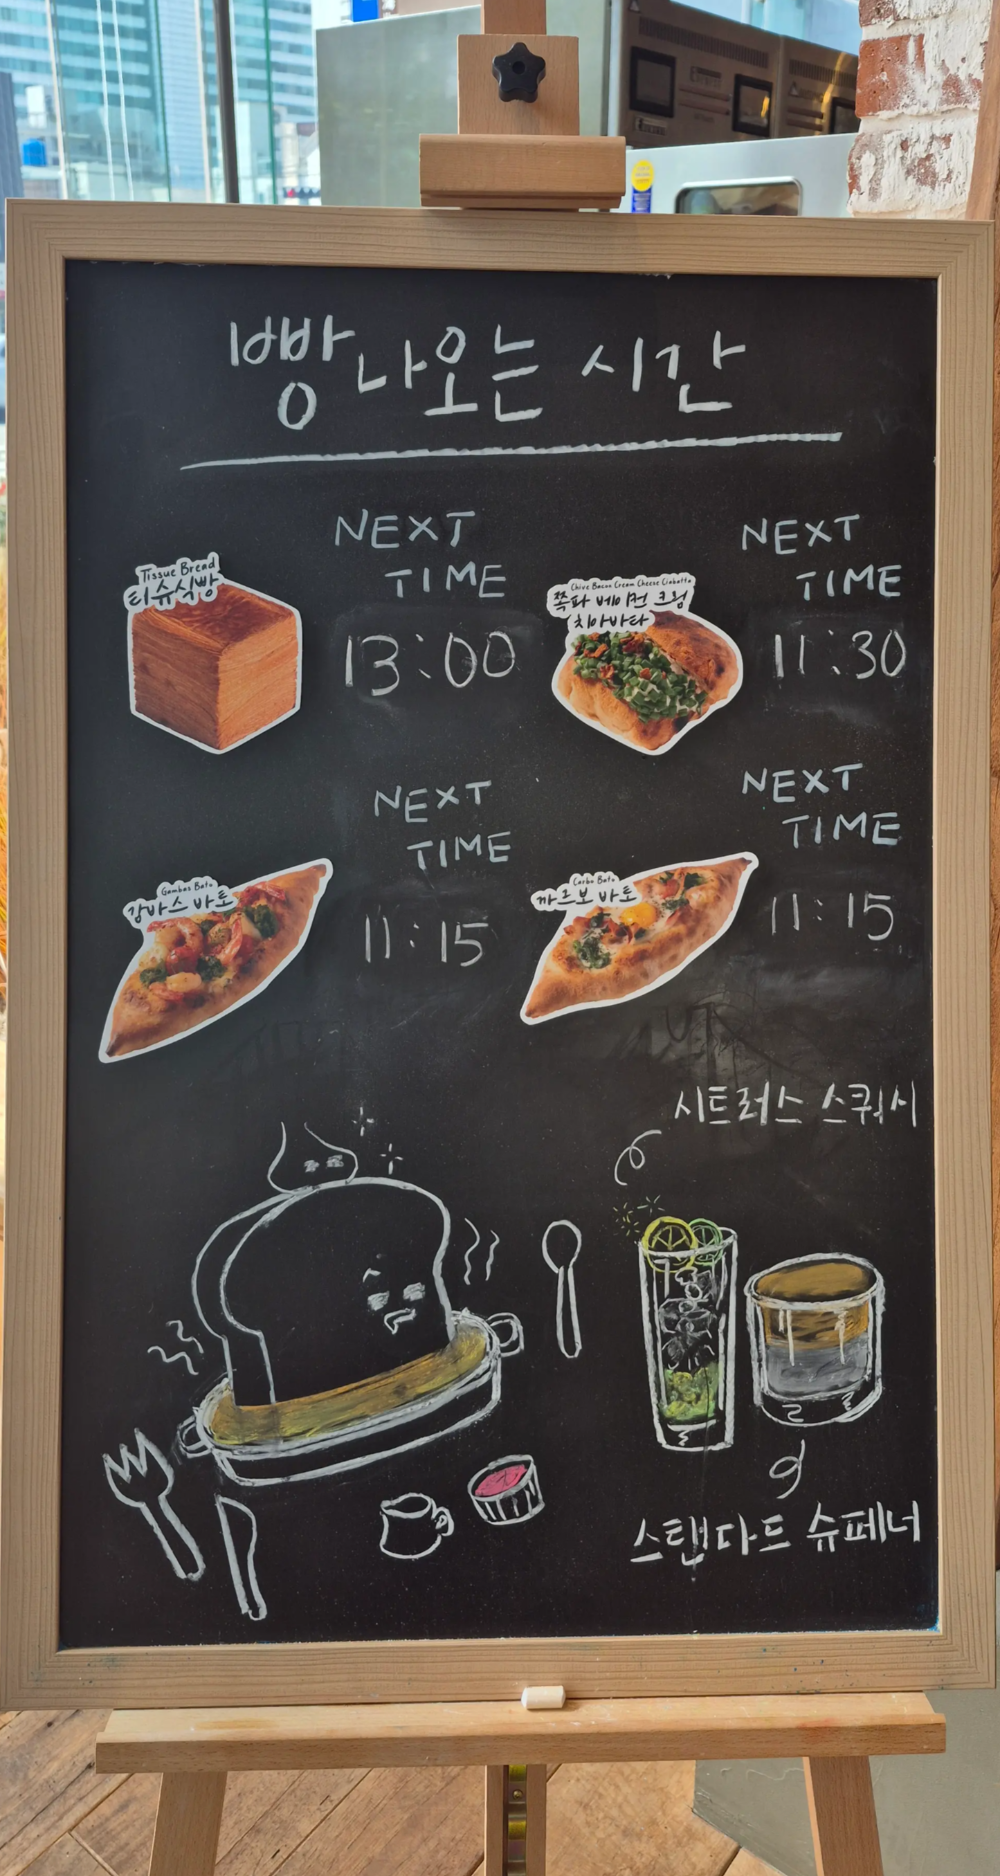 빵 나오는 시간
Tissue Bread
티슈식빵
NEXT
TIME
13:00
Chive Bacon Cream Cheese Ciabatta
쪽파 베이컨 크림
치아바타
NEXT
TIME
11:30
Gambas Bato
감바스 바토
NEXT
TIME
11:15
Carbo Bato
까르보 바토
NEXT
TIME
11:15
시트러스 스쿼시
스탠다드 슈페너